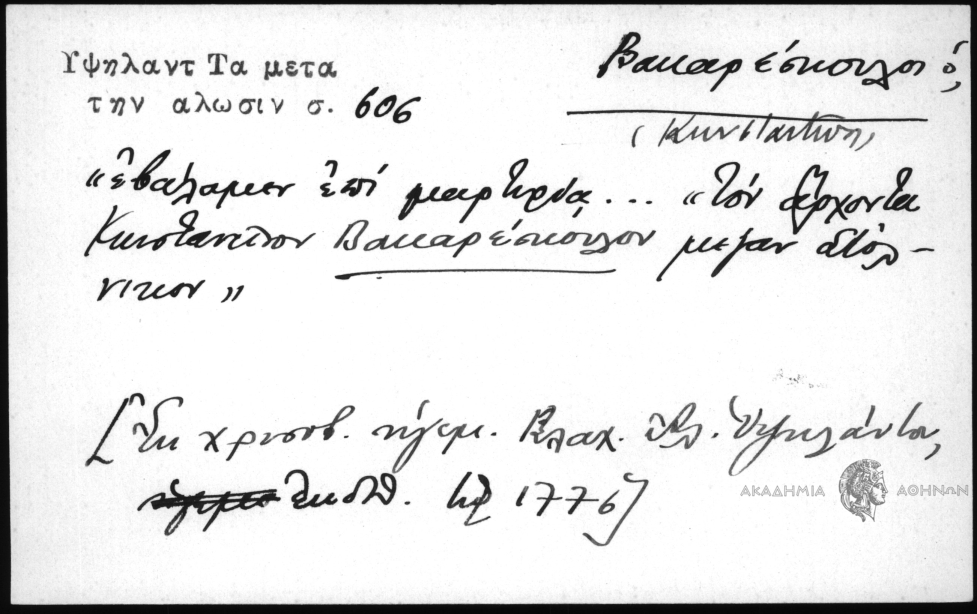 Υψηλαντ Τα μετα
την αλωσιν σ. 606
Βακαρέσκουλοι ό,
(Κωνσταντίνος)
"ἐβάλαμεν ἐπί μαρτυρίᾳ... "τόν ἄρχοντα
Κωνσταντῖνον Βακαρέσκουλον μέγαν στόλ-
νικον"
[Ἐκ χρυσοβ. ἡγεμ. Βλαχ. Ἀλ. Ὑψηλάντου,
ἐκδοθ. τῷ 1776]
ΑΚΑΔΗΜΙΑ ΑΘΗΝΩΝ